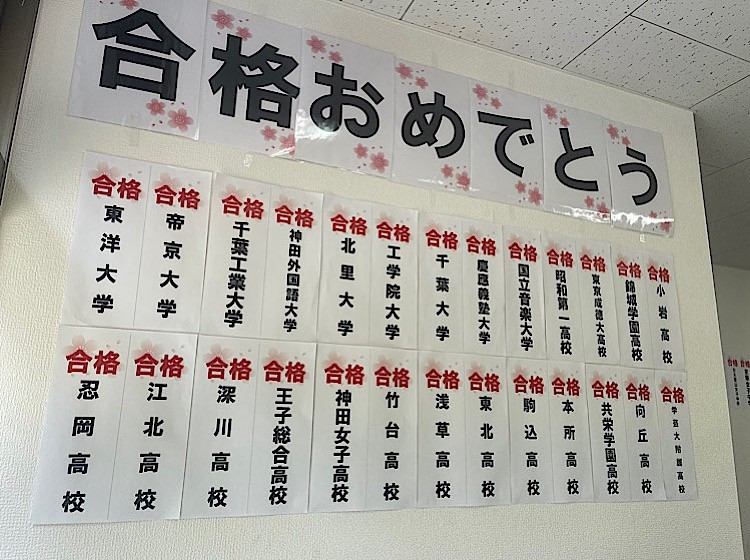 合格おめでとう
合格 東洋大学
合格 帝京大学
合格 千葉工業大学
合格 神田外国語大学
合格 北里大学
合格 工学院大学
合格 千葉大学
合格 慶應義塾大学
合格 国立音楽大学
合格 昭和第一高校
合格 東京成徳大高校
合格 錦城学園高校
合格 小岩高校
合格 忍岡高校
合格 江北高校
合格 深川高校
合格 王子総合高校
合格 神田女子高校
合格 竹台高校
合格 浅草高校
合格 東北高校
合格 駒込高校
合格 本所高校
合格 共栄学園高校
合格 向丘高校
合格 学芸大附属高校
合格
合格